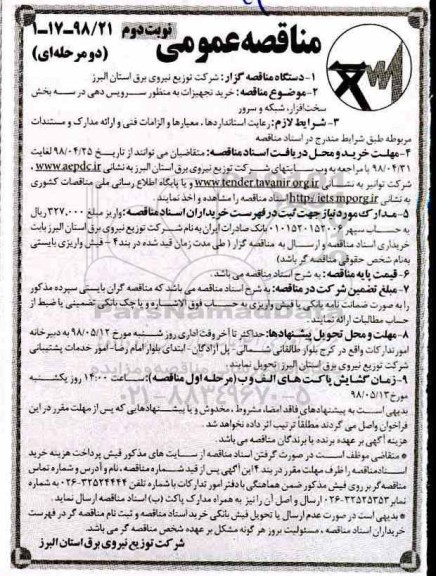 مناقصه عمومی
نوبت دوم ۹۸/۲۱-۱۷-۱
(دو مرحله‌ای)
۱-دستگاه مناقصه گزار: شرکت توزیع نیروی برق استان البرز
۲-موضوع مناقصه: خرید تجهیزات به منظور سرویس دهی در سه بخش
سخت‌افزار، شبکه و سرور
۳-شرایط لازم: رعایت استانداردها، معیارها و الزامات فنی و ارائه مدارک و مستندات
مربوطه طبق شرایط مندرج در اسناد مناقصه
۴-مهلت خرید و محل دریافت اسناد مناقصه: متقاضیان می توانند از تاریخ ۹۸/۰۴/۲۵ لغایت
۹۸/۰۴/۳۱ با مراجعه به وب سایتهای شرکت توزیع نیروی برق استان البرز به نشانی www.aepdc.ir،
شرکت توانیر به نشانی www.tender.tavanir.org.ir و یا پایگاه اطلاع رسانی ملی مناقصات کشوری
به نشانی http://iets.mporg.ir اسناد مناقصه را مشاهده و اخذ نمایند.
۵-مدارک مورد نیاز جهت ثبت در فهرست خریداران اسناد مناقصه: واریز مبلغ ۳۲۷،۰۰۰ ریال
به حساب سپهر ۰۱۰۱۵۲۰۱۵۲۰۰۶ بانک صادرات ایران به نام شرکت توزیع نیروی برق استان البرز بابت
خریداری اسناد مناقصه و ارسال به مناقصه گزار (طی مدت زمان قید شده در بند ۴ - فیش واریزی بایستی
به نام شخص حقوقی مناقصه گر باشد)
۶- قیمت پایه مناقصه: به شرح اسناد مناقصه می باشد.
۷- مبلغ تضمین شرکت در مناقصه: به شرح اسناد مناقصه می باشد که مناقصه گران بایستی سپرده مذکور
را به صورت ضمانت نامه بانکی یا فیش واریزی به حساب فوق الاشاره و یا چک بانکی تضمینی یا ضبط از
حساب مطالبات ارائه نمایند.
۸-مهلت و محل تحویل پیشنهادها: حداکثر تا آخر وقت اداری روز شنبه مورخ ۹۸/۰۵/۱۲ به دبیرخانه
امور تدارکات واقع در کرج بلوار طالقانی شمالی - پل آزادگان - ابتدای بلوار امام رضا - امور خدمات پشتیبانی
شرکت توزیع نیروی برق استان البرز تحویل نمایند.
۹- زمان گشایش پاکت های الف و ب (مرحله اول مناقصه): ساعت ۱۴:۰۰ روز یکشنبه
مورخ ۹۸/۰۵/۱۳
بدیهی است به پیشنهادهای فاقد امضا، مشروط، مخدوش و یا پیشنهادهایی که پس از مهلت مقرر در این
فراخوان واصل می گردند مطلقا ترتیب اثر داده نخواهد شد.
هزینه آگهی بر عهده برنده یا برندگان مناقصه می باشد.
* متقاضی موظف است در صورت گرفتن اسناد مناقصه از سایت های مذکور فیش پرداخت هزینه خرید
اسناد مناقصه را ظرف مهلت مقرر در بند ۴ این آگهی پس از قید شماره مناقصه، نام و آدرس و شماره تماس
مناقصه گر بر روی فیش مذکور ضمن هماهنگی با دفتر امور تدارکات با شماره تلفن ۳۲۵۳۴۴۴۴-۰۲۶ به شماره
نمابر ۳۲۵۲۵۳۵۳-۰۲۶ ارسال و اصل آن را نیز به همراه مدارک پاکت (ب) اسناد مناقصه ارسال نماید.
* بدیهی است در صورت عدم ارسال یا تحویل فیش بانکی خرید اسناد مناقصه و ثبت نام مناقصه گر در فهرست
خریداران اسناد مناقصه، مسئولیت بروز هر گونه مشکل بر عهده شخص مناقصه گر می باشد.
شرکت توزیع نیروی برق استان البرز
ParsNamadData
۰۲۱-۸۸۳۴۹۶۷۰-۵